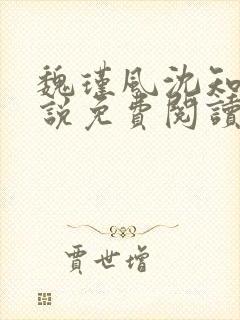 魏瑾风沈知
說免費閱讀
賈世增